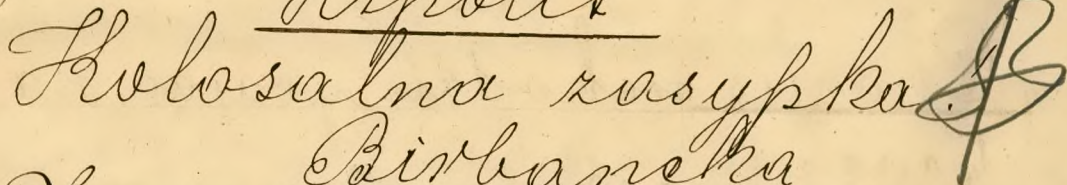 Kolosalna zasypka.
Birbancka